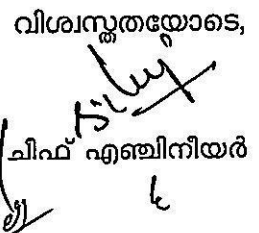 വിശ്വസ്തതയോടെ,
ചീഫ് എഞ്ചിനീയർ